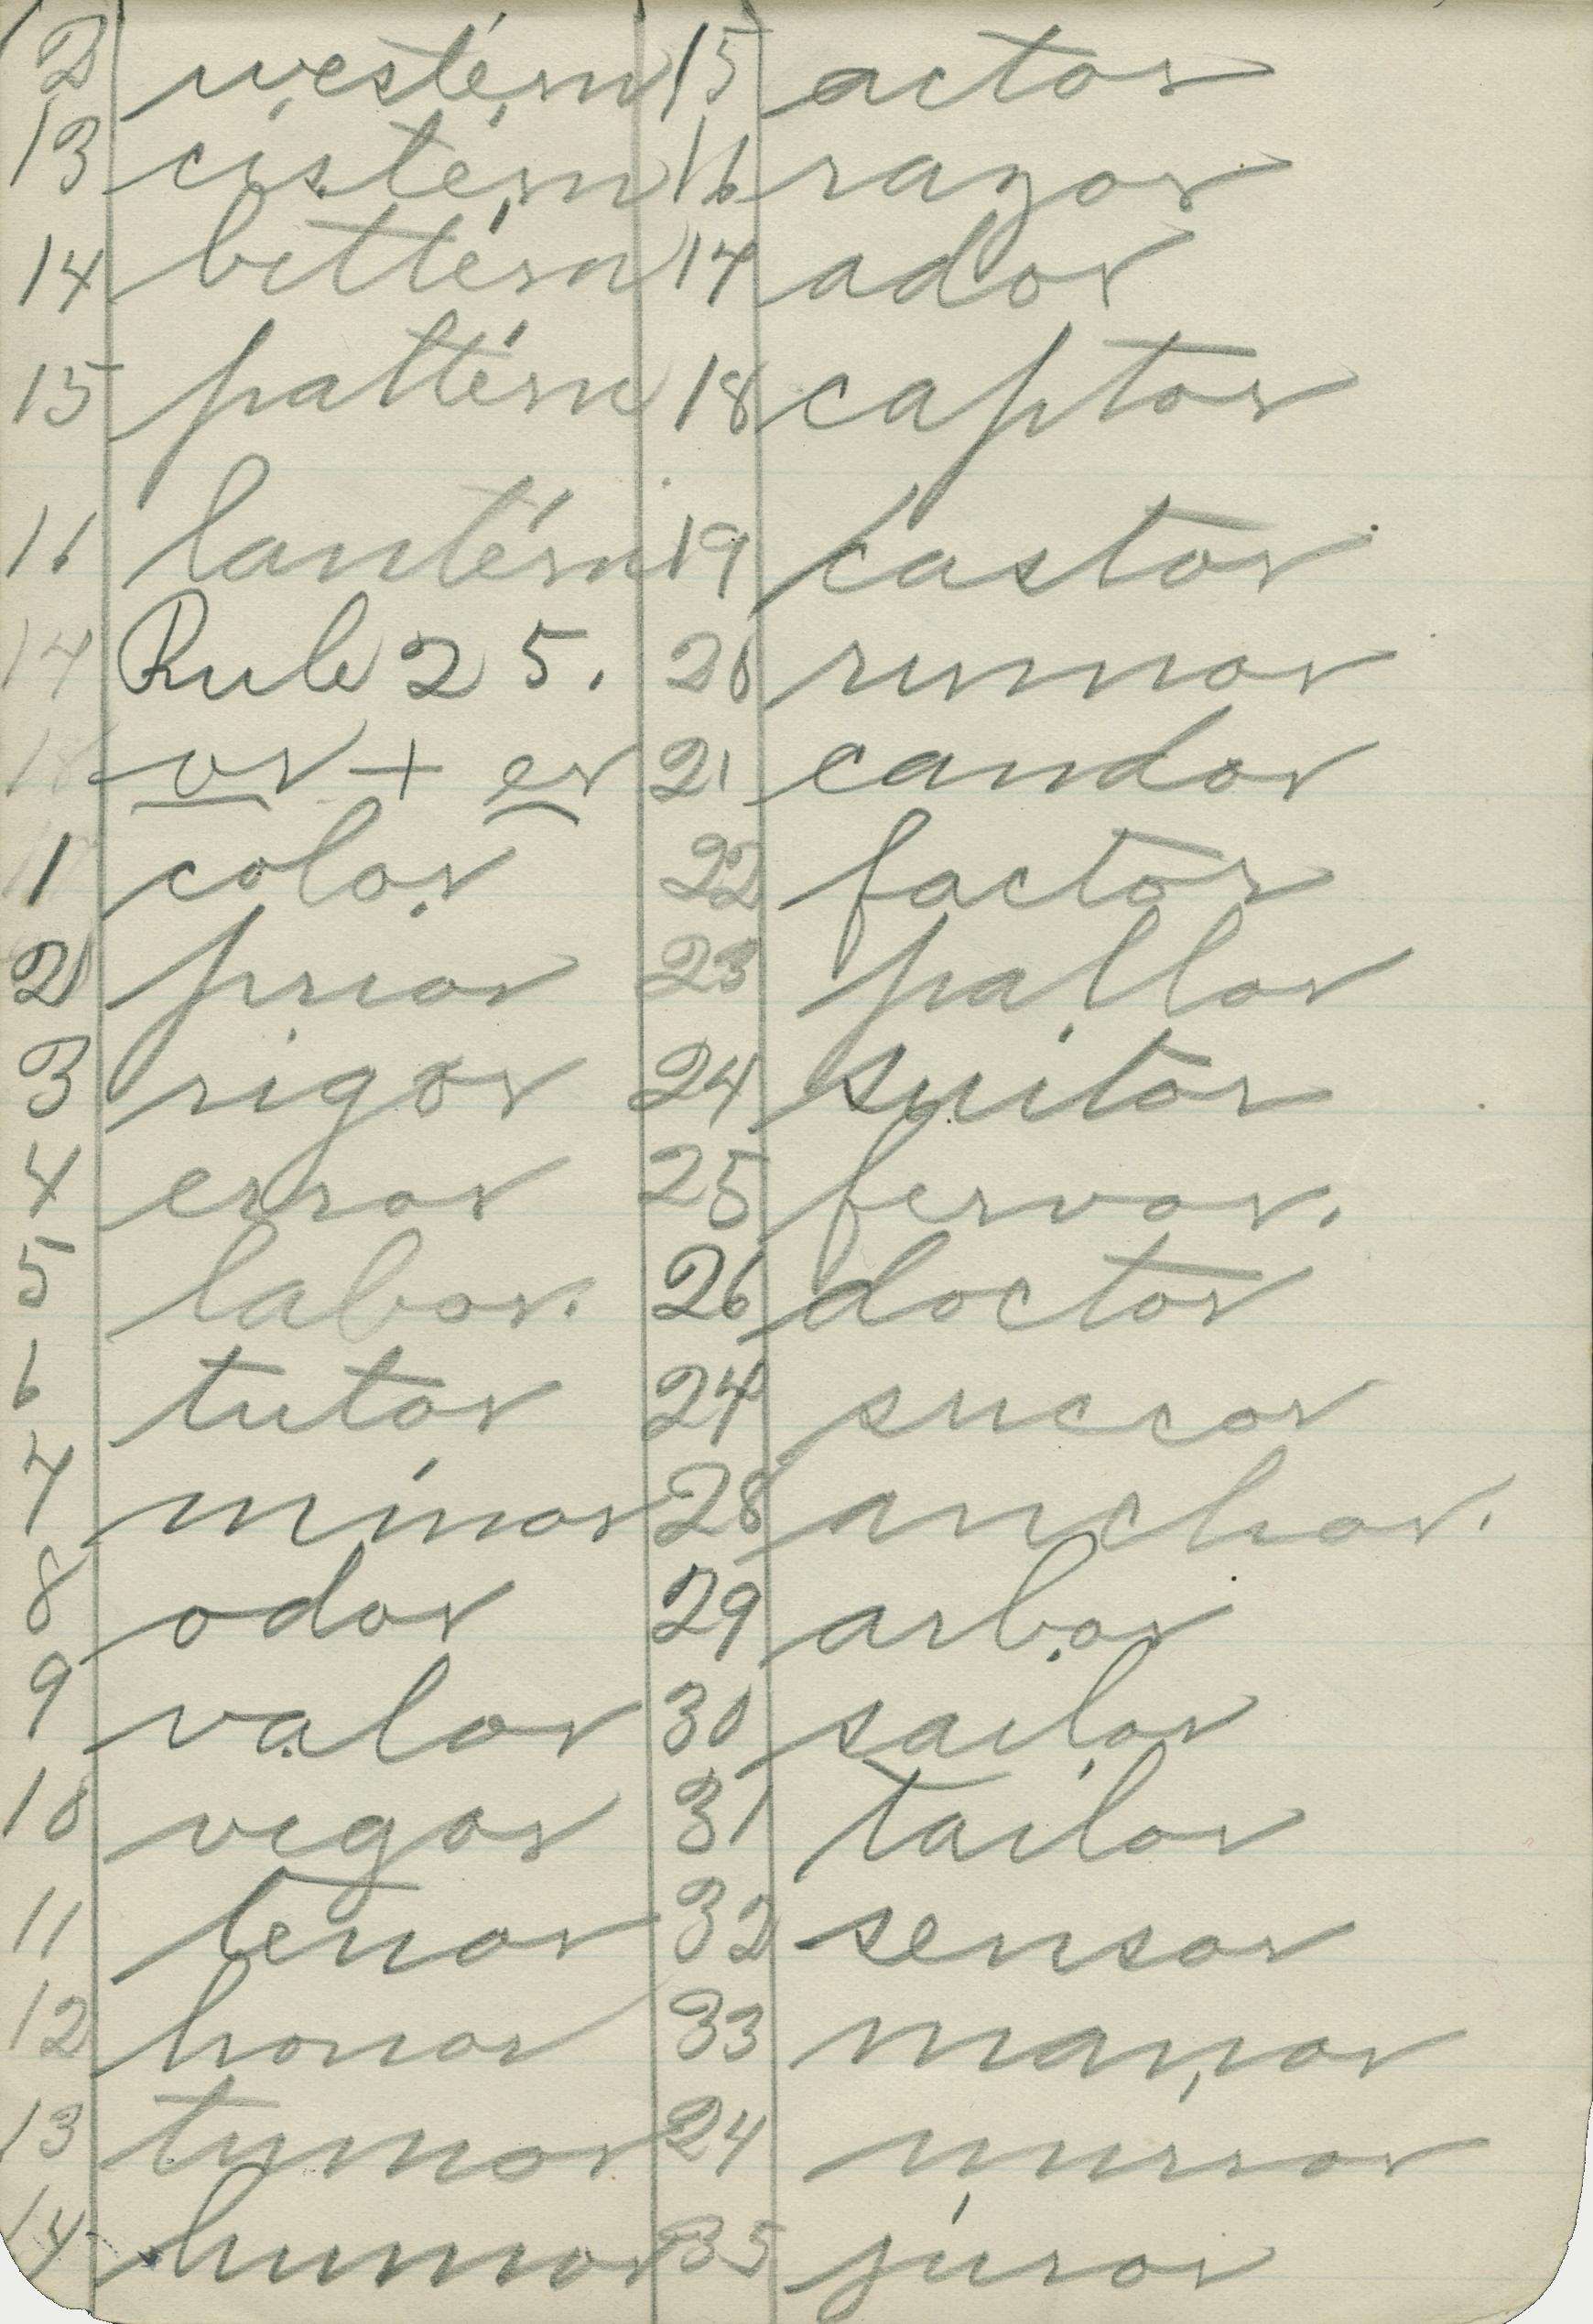 12 western
13 cistern
14 bittern
15 pattern
16 lantern
17 Rule 25.
18 or + er
1 color
2 prior
3 rigor
4 error
5 labor.
6 tutor
7 minor
8 odor
9 valor
10 vigor
11 tenor
12 honor
13 tumor
14 humor
15 actor
16 razor
17 ador
18 captor
19 castor
20 rumor
21 candor
22 factor
23 pallor
24 suitor
25 fervor.
26 doctor
27 succor
28 anchor.
29 arbor
30 sailor
31 tailor
32 sensor
33 manor
24 mirror
35 juror